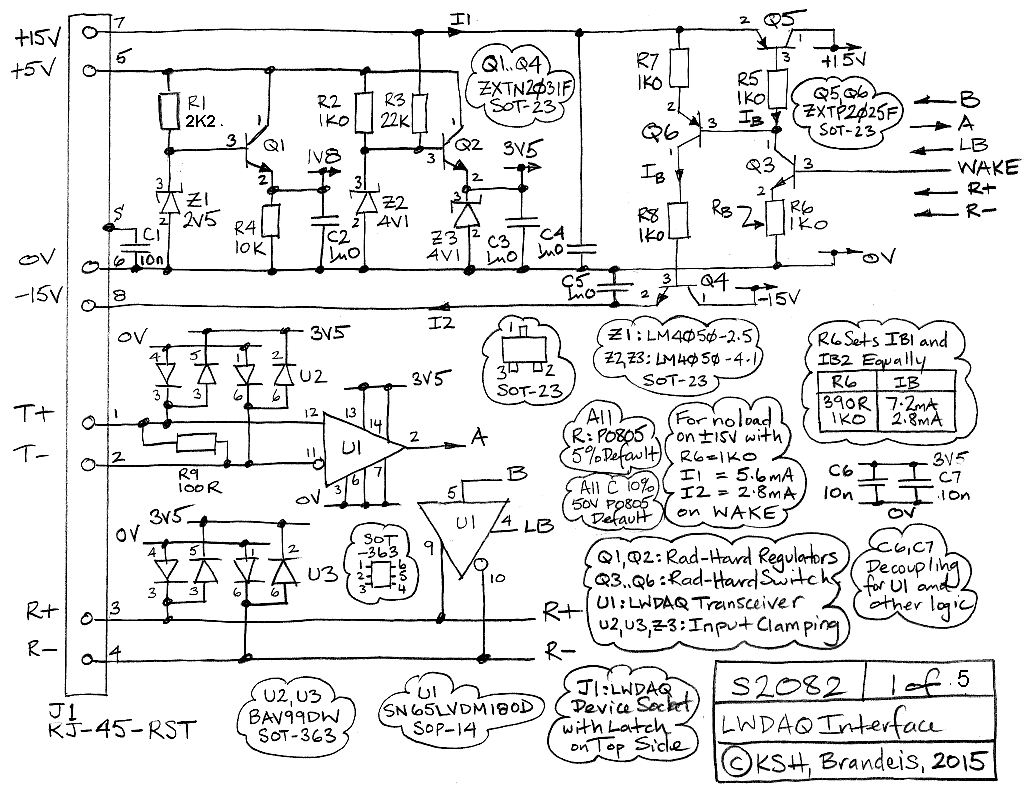 +15V
7
I1
2
Q5
1
3
+15V
+5V
5
R1
2K2
3
1
Q1
2
1V8
R2
1K0
R3
22K
3
1
Q2
2
3V5
Q1..Q4
ZXTN2Ø31F
SOT-23
R7
1K0
2
Q6
3
1
IB
R5
1K0
IB
Q5,Q6
ZXTP2Ø25F
SOT-23
B
A
LB
WAKE
R+
R-
1
Q3
3
2
3
Z1
2V5
2
R4
10K
C2
1u0
3
Z2
4V1
2
3
Z3
4V1
2
C3
1u0
C4
1u0
R8
1K0
RB
R6
1K0
S
C1
10n
0V
6
0V
C5
1u0
3
Q4
2
1
-15V
-15V
8
I2
0V
3V5
4
5
1
2
3
3
6
6
U2
1
3
2
SOT-23
Z1: LM4Ø5Ø-2.5
Z2,Z3: LM4Ø5Ø-4.1
SOT-23
R6 Sets IB1 and
IB2 Equally
R6 IB
390R 7.2mA
1K0 2.8mA
T+
1
12
13
14
3V5
U1
2
A
T-
2
11
R9
100R
3
6
7
0V
All
R: P0805
5% Default
All C 10%
50V P0805
Default
For no load
on ±15V with
R6=1K0
I1 = 5.6mA
I2 = 2.8mA
on WAKE
C6
10n
3V5
C7
10n
0V
B
5
U1
4
LB
9
10
3V5
0V
4
5
1
2
3
3
6
6
U3
SOT
-363
1
2
3
6
5
4
Q1,Q2: Rad-Hard Regulators
Q3..Q6: Rad-Hard Switch
U1: LWDAQ Transceiver
U2,U3,Z3: Input Clamping
C6,C7
Decoupling
for U1 and
other logic
R+
3
R+
R-
4
R-
J1
KJ-45-RST
U2,U3
BAV99DW
SOT-363
U1
SN65LVDM180D
SOP-14
J1: LWDAQ
Device Socket
with Latch
on Top Side
S2082
1 of 5
LWDAQ Interface
© KSH, Brandeis, 2015